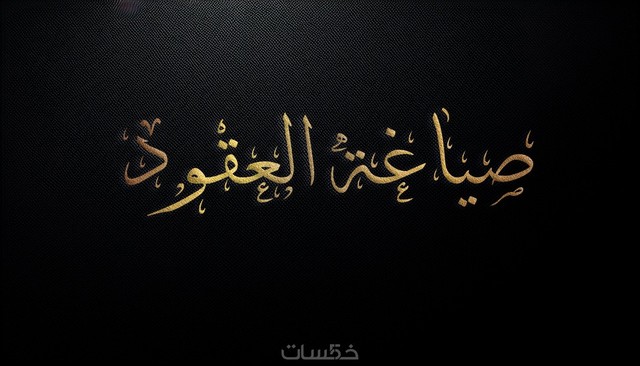 صياغة العقود
خمسات